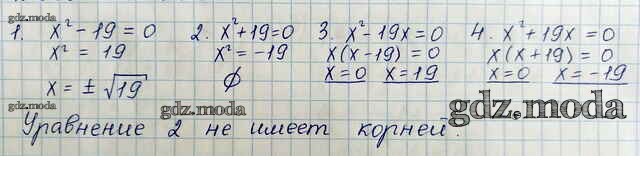 1. x² - 19 = 0
x² = 19
x = ± √19
2. x² + 19 = 0
x² = -19
∅
3. x² - 19x = 0
x(x - 19) = 0
x = 0 x = 19
4. x² + 19x = 0
x(x + 19) = 0
x = 0 x = -19
gdz.moda
gdz.moda
gdz.moda
gdz.moda
Уравнение 2 не имеет корней.